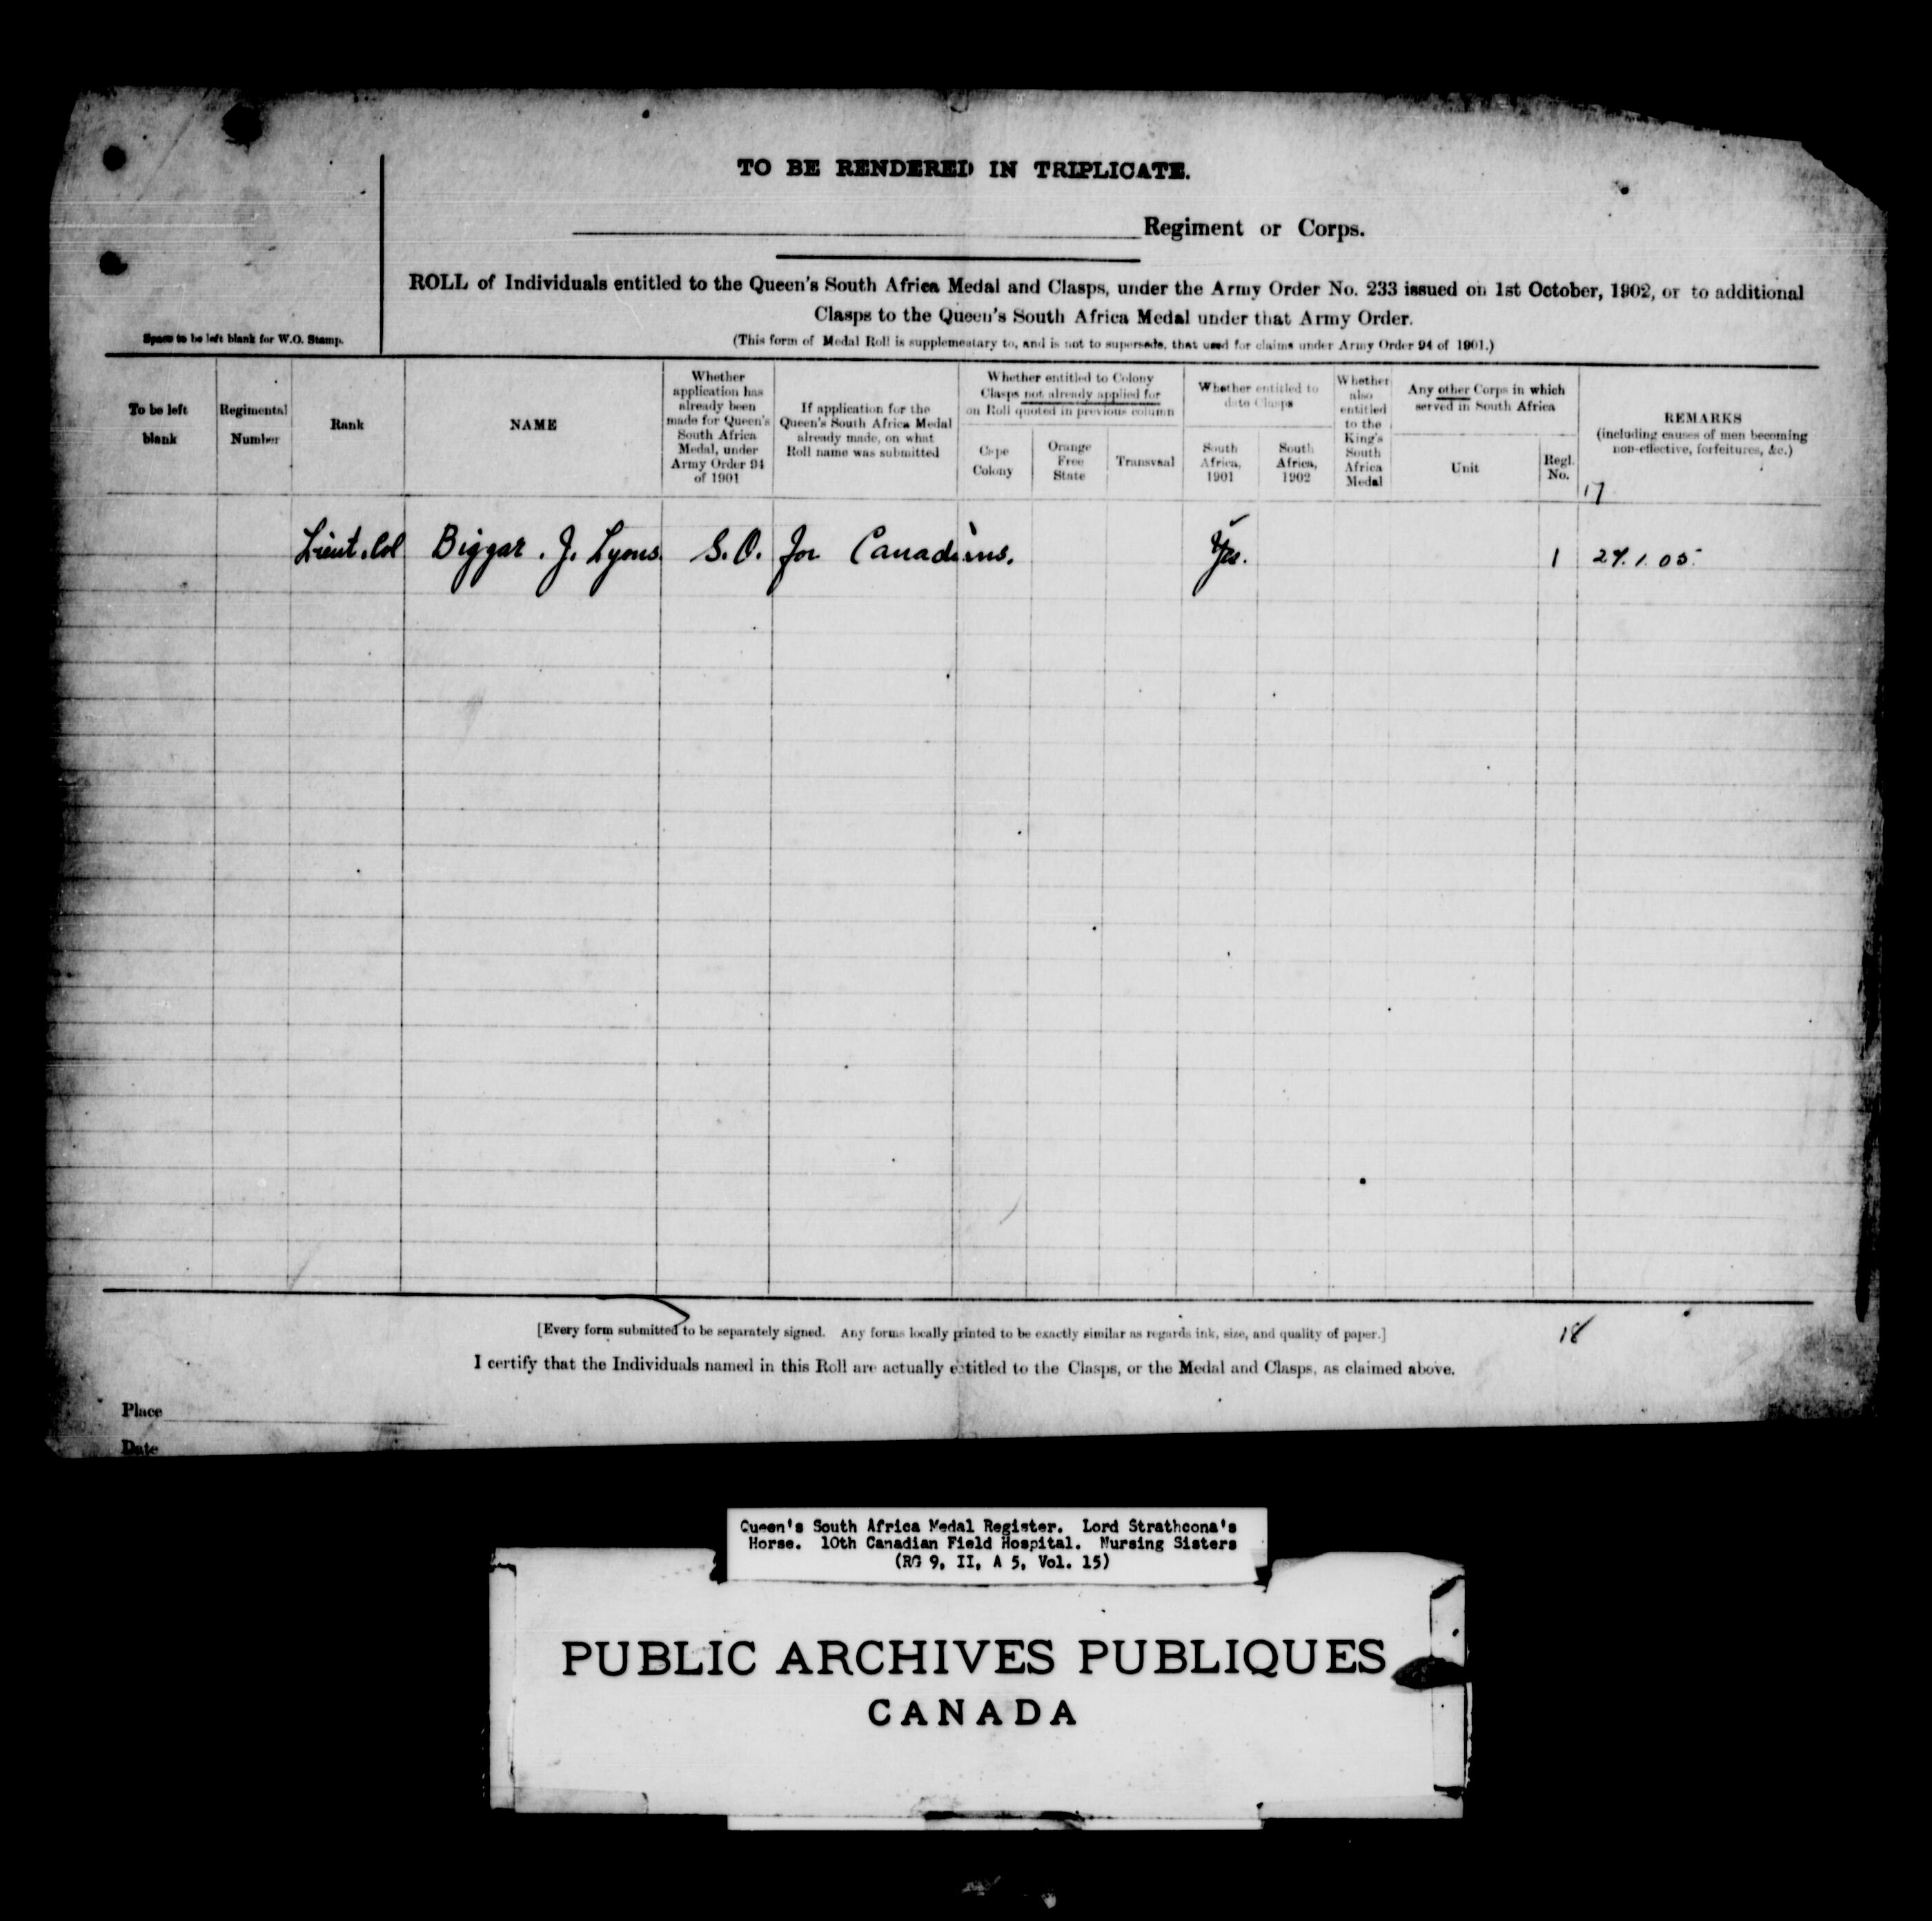 TO BE RENDERED IN TRIPLICATE.
Regiment or Corps.
ROLL of Individuals entitled to the Queen's South Africa Medal and Clasps, under the Army Order No. 233 issued on 1st October, 1902, or to additional
Clasps to the Queen's South Africa Medal under that Army Order.
(This form of Medal Roll is supplementary to, and is not to supersede, that used for claims under Army Order 94 of 1901.)
Space to be left blank for W.O. Stamp.
To be left
blank
Regimental
Number
Rank
NAME
Whether
application has
already been
made for Queen's
South Africa
Medal, under
Army Order 94
of 1901
If application for the
Queen's South Africa Medal
already made, on what
Roll name was submitted
Whether entitled to Colony
Clasps not already applied for
on Roll quoted in previous column
Cape
Colony
Orange
Free
State
Transvaal
Whether entitled to
date Clasps
South
Africa,
1901
South
Africa,
1902
Whether
also
entitled
to the
King's
South
Africa
Medal
Any other Corps in which
served in South Africa
Unit
Regl.
No.
REMARKS
(including causes of men becoming
non-effective, forfeitures, &c.)
17
Lieut. Col Biggar . J. Lyons S.O. for Canadians. Yes. 1 27.1.05.
[Every form submitted to be separately signed. Any forms locally printed to be exactly similar as regards ink, size, and quality of paper.]
18
I certify that the Individuals named in this Roll are actually entitled to the Clasps, or the Medal and Clasps, as claimed above.
Place
Date
Queen's South Africa Medal Register. Lord Strathcona's
Horse. 10th Canadian Field Hospital. Nursing Sisters
(RG 9, II, A 5, Vol. 15)
PUBLIC ARCHIVES PUBLIQUES
CANADA